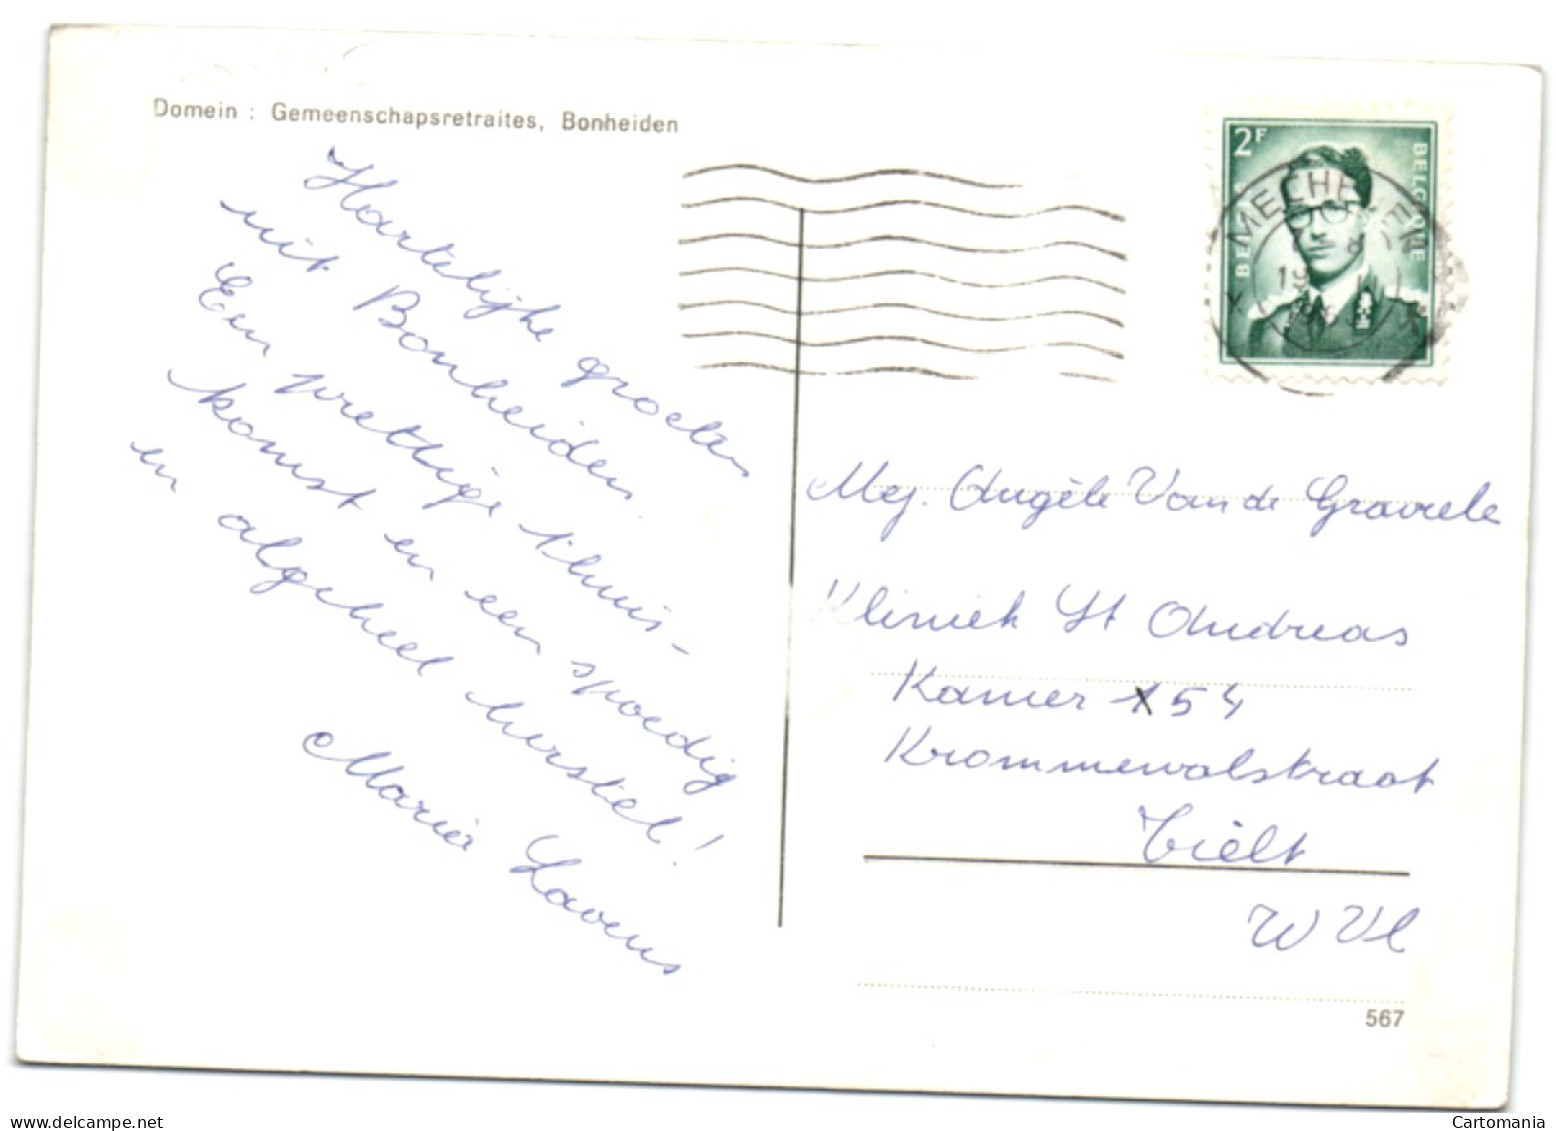 Domein : Gemeenschapsretraites, Bonheiden
Hartelijke groeten
uit Bonheiden.
Een prettige thuis-
komst en een spoedig
en algeheel herstel!
Maria Lavens
2F
BELGIQUE
MECHELEN
Mej. Angèle Van de Graveele
Kliniek St Andreas
Kamer 154
Krommewalstraat
Tielt
W Vl
567
www.delcampe.net
Cartomania